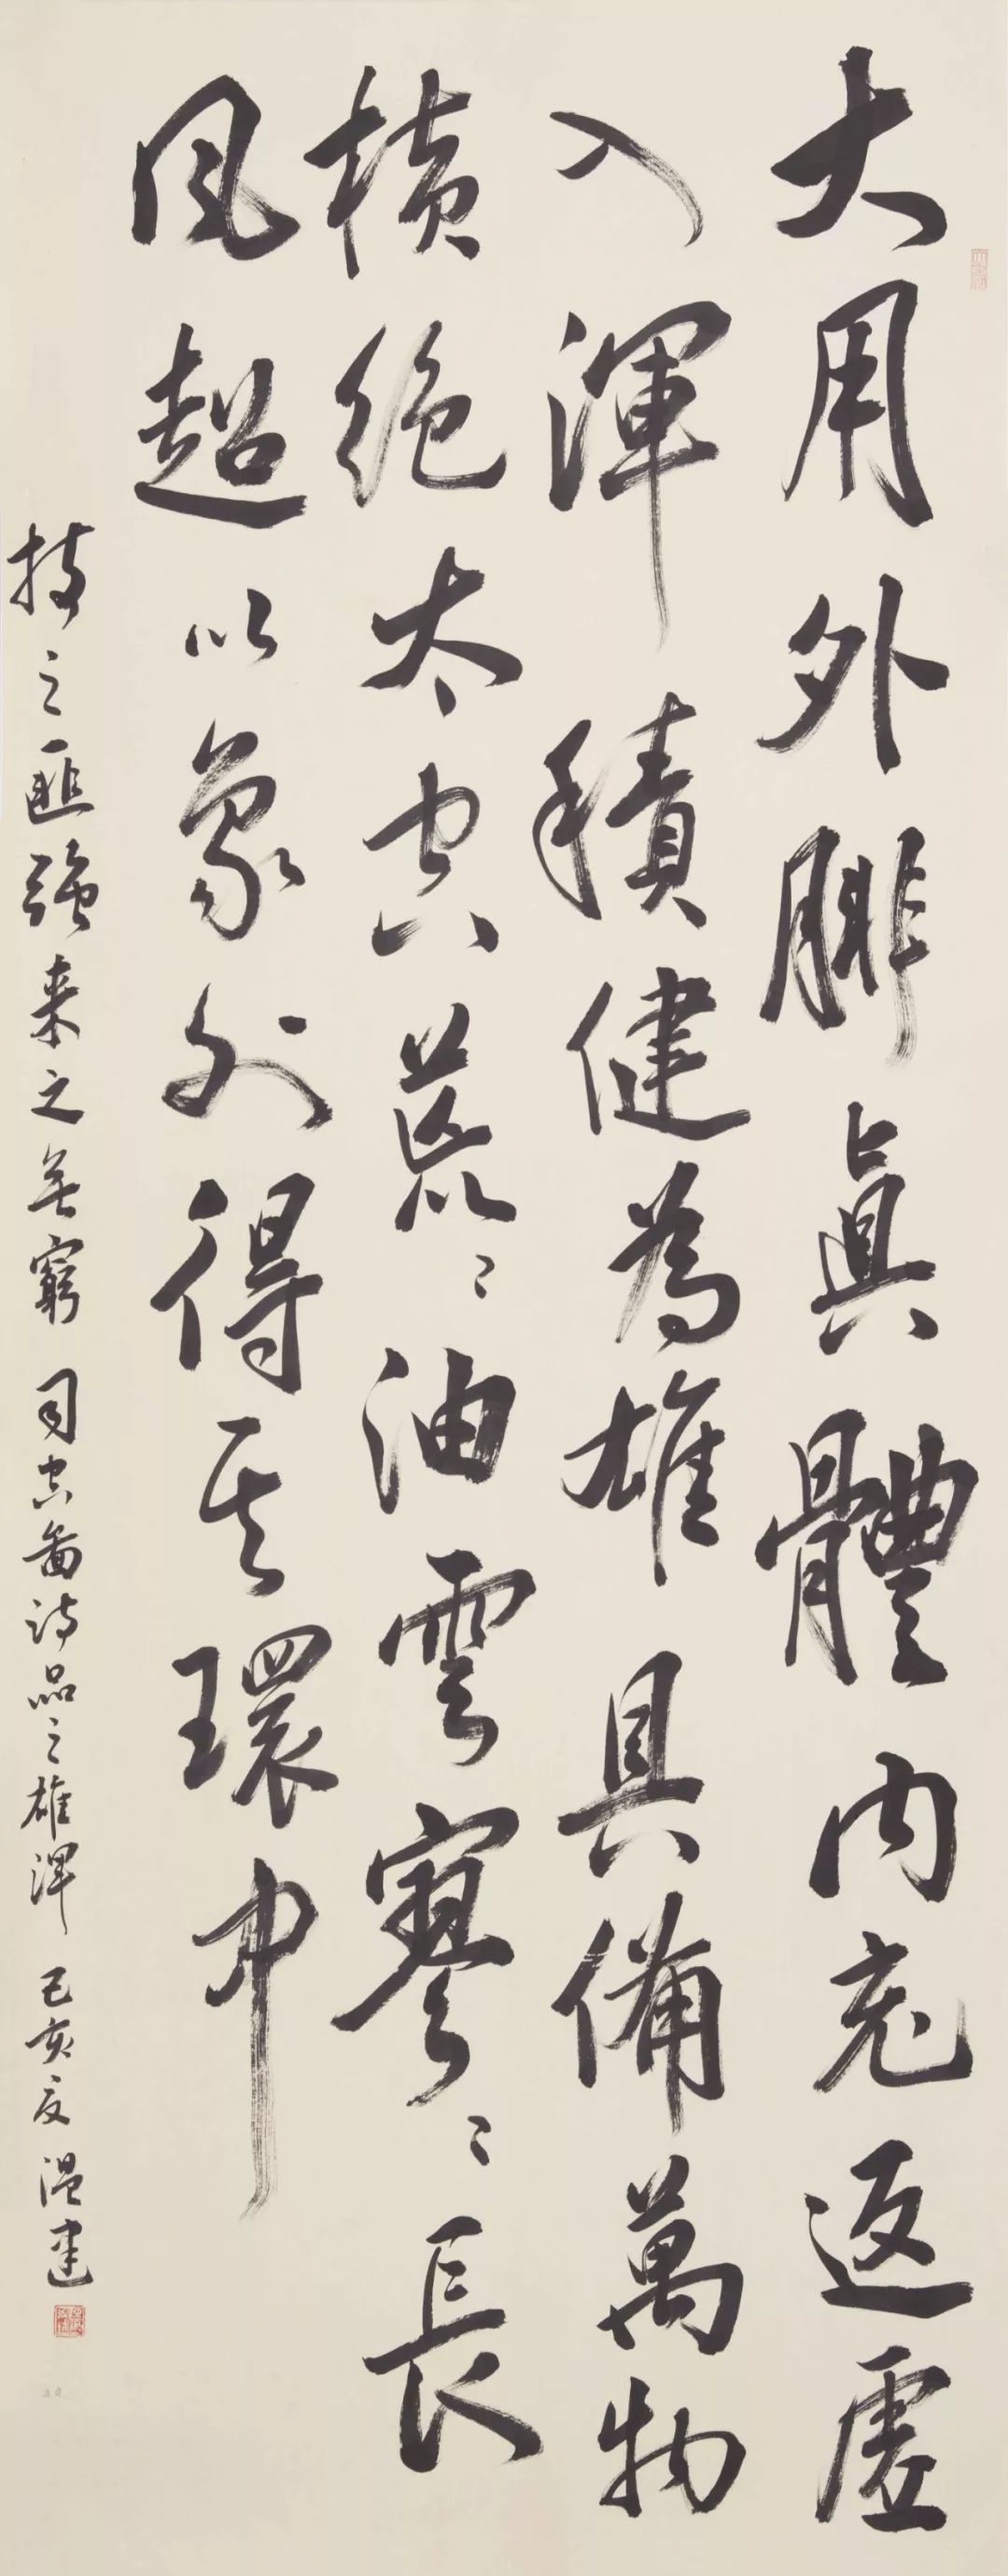 大用外腓眞體內充返虛
入渾積健為雄具備萬物
橫絕太空荒〻油雲寥〻長
風超以象外得其環中
持之匪強來之無窮 司空圖詩品之雄渾 己亥夏 溫建